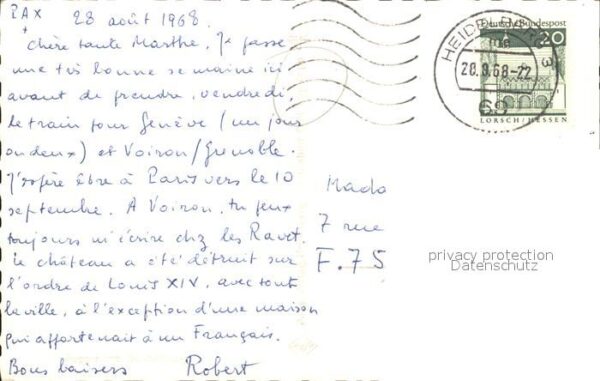 PAX 28 août 1968
+
Chère tante Marthe, Je passe
une très bonne semaine ici
avant de prendre, vendredi,
le train pour Genève (un jour
ou deux) et Voiron/Grenoble.
J'espère être à Paris vers le 10
septembre. A Voiron, tu peux
toujours m'écrire chez les Ravet.
le château a été détruit sur
l'ordre de Louis XIV, avec tout
la ville, à l'exception d'une maison
qui appartenait à un Français.
Bons baisers Robert
Mado
7 rue
F. 75
privacy protection
Datenschutz
HEIDELBERG 3
28.8.68-22
69
Deutsche Bundespost
20
LORSCH/HESSEN